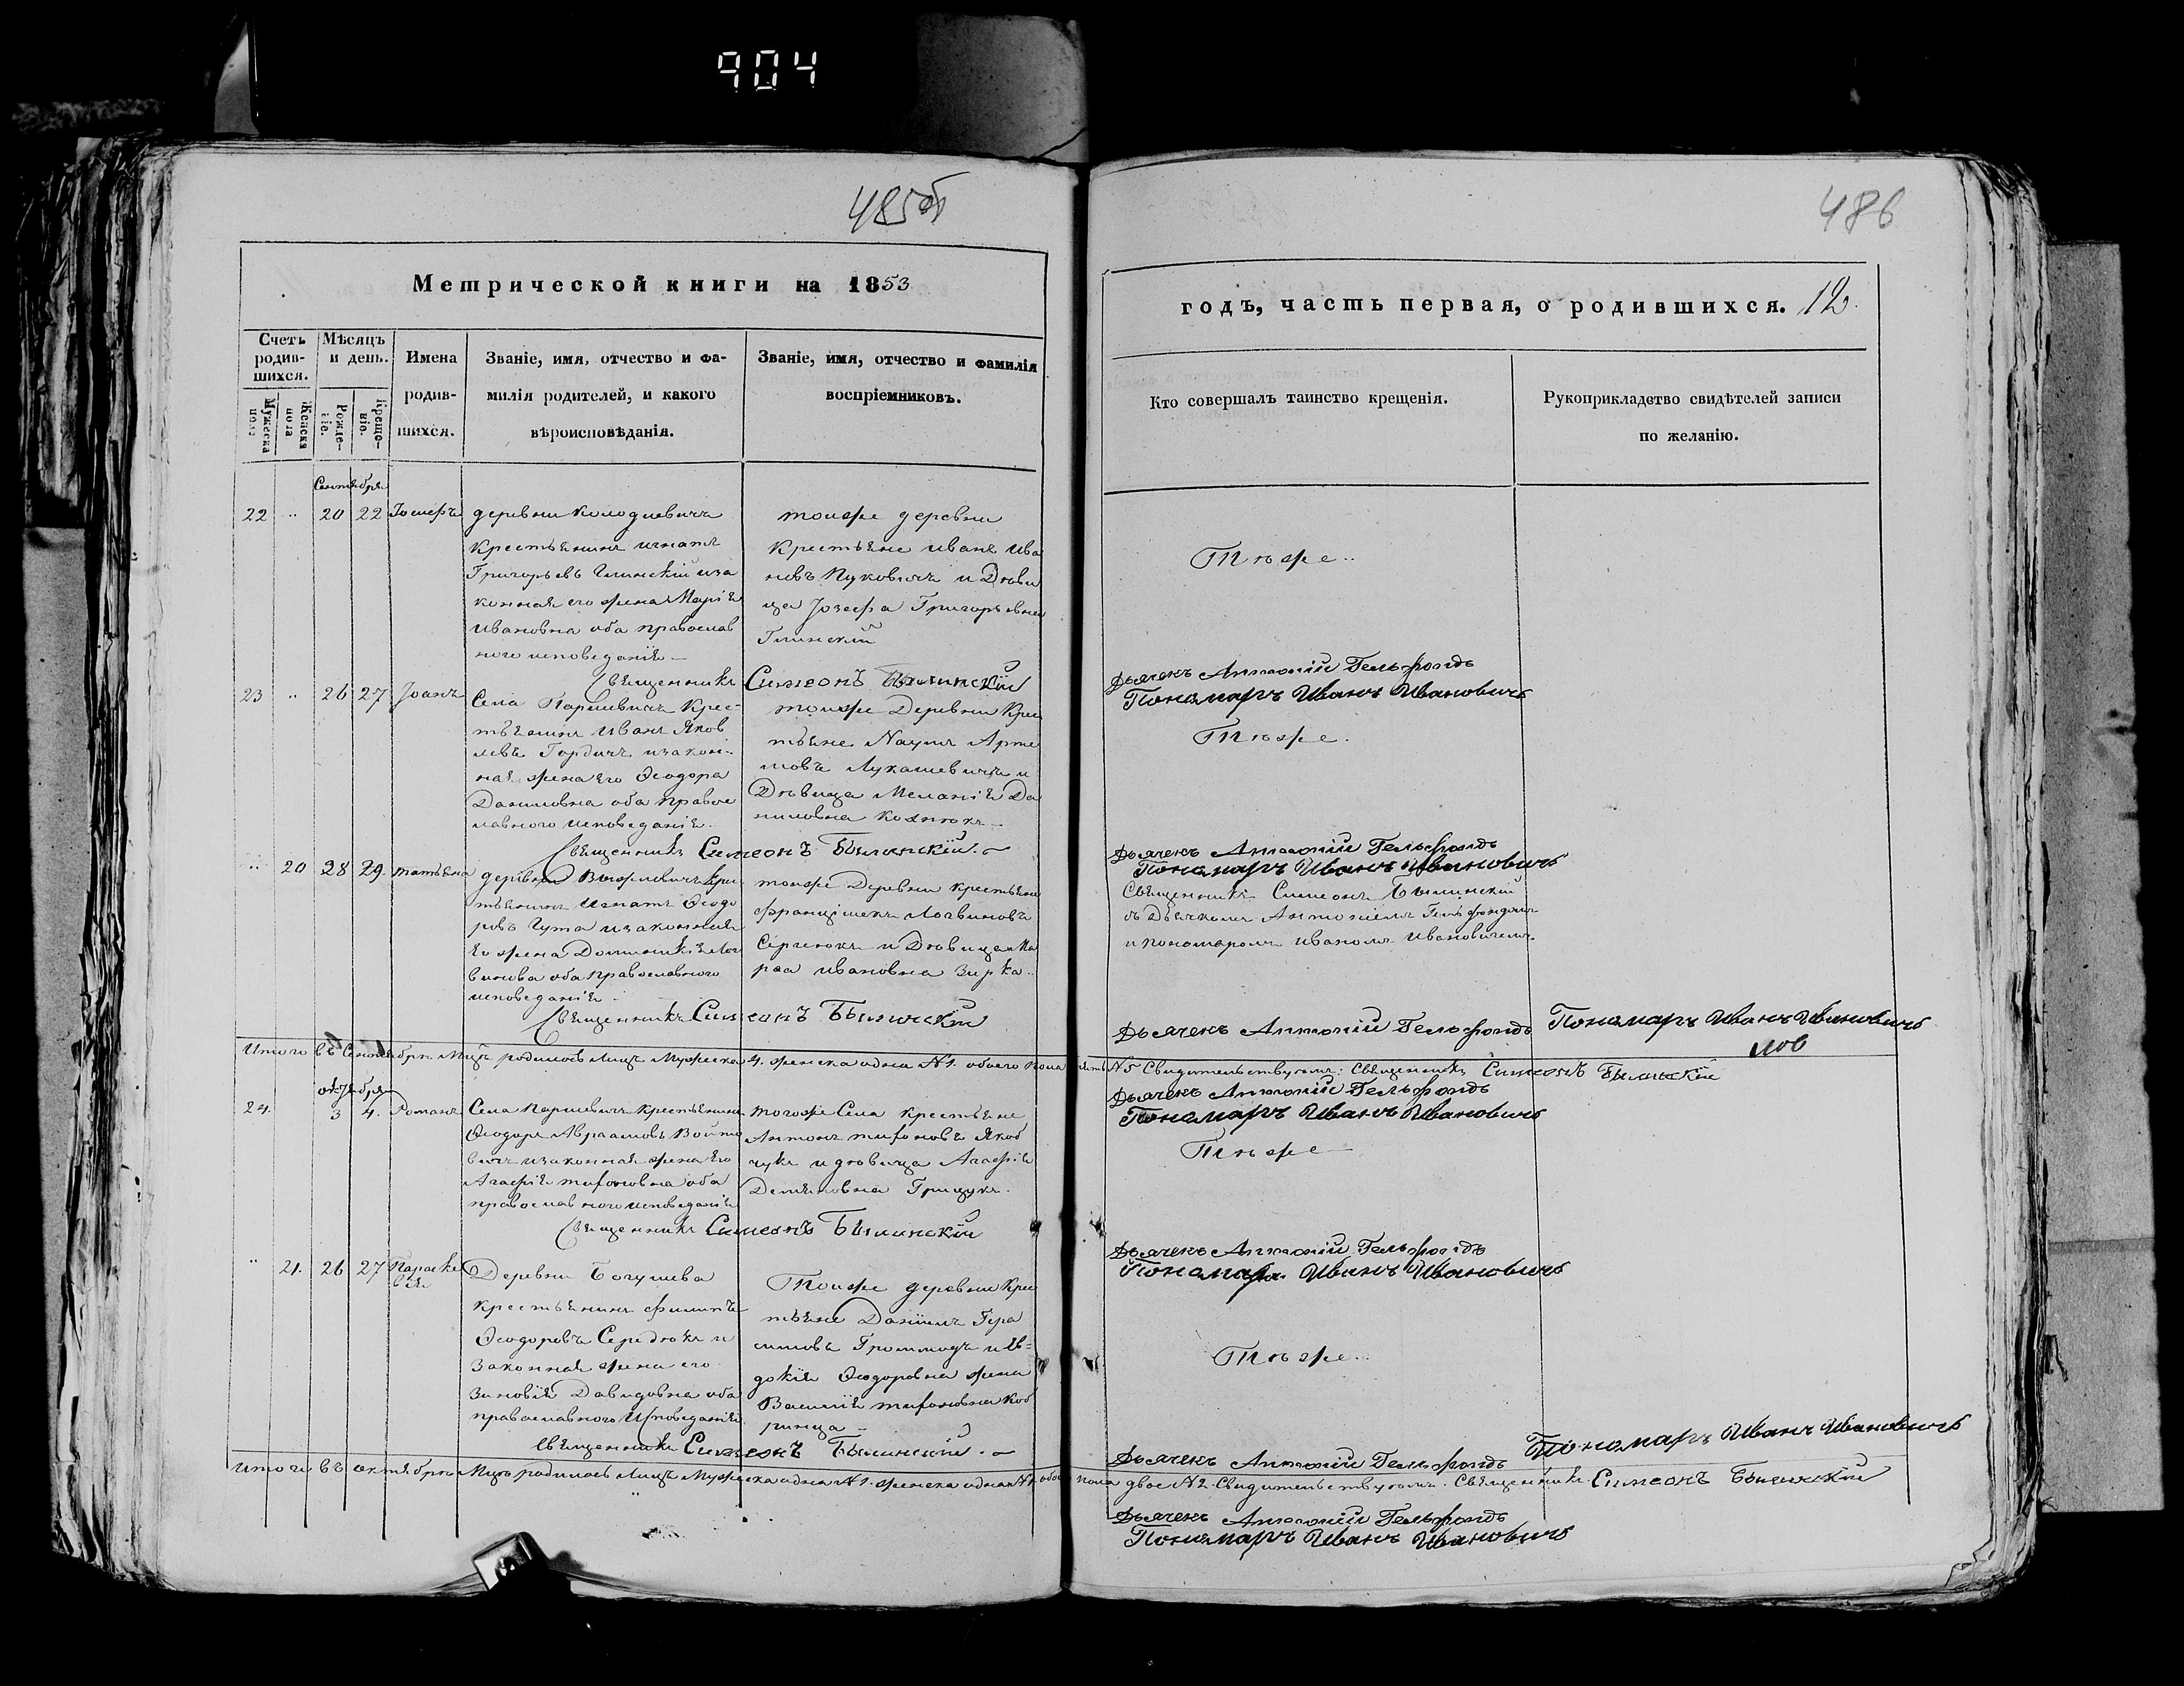 904
485об
486
Метрической книги на 1853
годъ, часть первая, о родившихся. 12.
Счетъ родив-шихся.
Мужеска пола
Женска пола
Мѣсяцъ и день.
Рожде-ніе.
Креще-ніе.
Имена родив-шихся.
Званіе, имя, отчество и фа-
милія родителей, и какого
вѣроисповѣданія.
Званіе, имя, отчество и фамилія
воспріемниковъ.
Кто совершалъ таинство крещенія.
Рукоприкладство свидѣтелей записи
по желанію.
Сентября
22 " 20 22 Іосифъ
деревни Колодневичъ
крестьянинъ Игнатъ
Григорьевъ Глинскій иза
конная его жена Марія
Ивановна оба православ
ного исповеданія
тоиже деревни
крестьяне Иванъ Ива
новъ Пуковичъ и Дѣви
ца Іозефа Григорьевна
Глинскій
Тѣже
Священникъ Симеонъ Былинскій
Дьячекъ Антоній Гельфондъ
Пономарь Иванъ Ивановичъ
23 " 26 27 Іоанъ
Села Паршевичъ Крес-
тьянинъ Иванъ Яков
левъ Гордичъ изакон-
ная жена его Ѳеодора
Даниловна оба правос
лавного исповеданія
тоиже Деревни Крес
тьяне Наумъ Арте
мовъ Лукашевичъ и
Дѣвица Меланія Да
ниловна
Тѣже.
Священникъ Симеонъ Былинскій
Дьячекъ Антоній Гельфондъ
Пономарь Иванъ Ивановичъ
" 20 28 29 татьяна
деревни крес
тьянинъ Игнатъ Ѳеодо
ровъ Гута изаконная
Его жена Доминикія Лог
винова оба православного
исповеданія
тоиже Деревни крестьяне
францішекъ Логвиновъ
Сергиюкъ и Дѣвица Ма
рѳа Ивановна Зирка
Священникъ Симеонъ Былинскій
съ дьячкомъ Антоніемъ Гельфондомъ
и пономаромъ Иваномъ Ивановичемъ.
Священникъ Симеонъ Былинскій
Дьячекъ Антоній Гельфондъ
Пономарь Иванъ Ивановичъ
Итого въ Сентябрѣ Мцѣ родилось Лицъ Мужеска 4. женска одна №1. обоего пола пять №5 Свидительствуютъ: Священникъ Симеонъ Былинскій
Дьячекъ Антоній Гельфондъ
Пономарь Иванъ Ивановичъ
октября
24. 3 4. Романъ
Села Паршевичъ крестьянинъ
Ѳеодоръ Авраамовъ Войто
вичъ изаконная жена Его
Агафія тифоновна оба
православного исповеданія
тогоже Села крестьяне
Антонъ тифоновъ Якоб
чукъ и дѣвица Агафія
Демяновна Грицукъ.
Тѣже
Священникъ Симеонъ Былинскій
Дьячекъ Антоній Гельфондъ
Пономарь Иванъ Ивановичъ
" 21. 26 27 Параске
вія
Деревни Богушева
крестьянинъ филипъ
Ѳеодоровъ Середюкъ и
Законная жена его
Зиновія Давидовна оба
православного Исповеданія
Тоиже деревни Крес
тьяне Даніилъ Гера
симовъ Громмодъ и Ев-
докія Ѳеодоровна жена
Василія тифоновна Коб
ринца
Тѣже
Священникъ Симеонъ Былинскій
Дьячекъ Антоній Гельфондъ
Пономарь Иванъ Ивановичъ
Итого въ октябрѣ Мцѣ родилось Лицъ Мужеска одинъ №1. женска одна №1 обоего пола двое №2. Свидительствуютъ. Священникъ Симеонъ Былинскій
Дьячекъ Антоній Гельфондъ
Пономарь Иванъ Ивановичъ